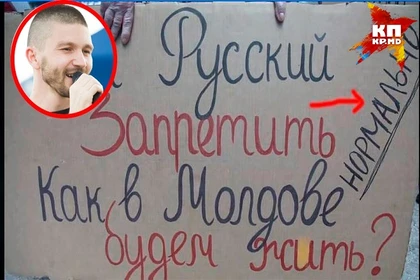 КП
KP.MD
Русский
Запретить
Как в Молдове
будем жить?
НОРМАЛЬНО